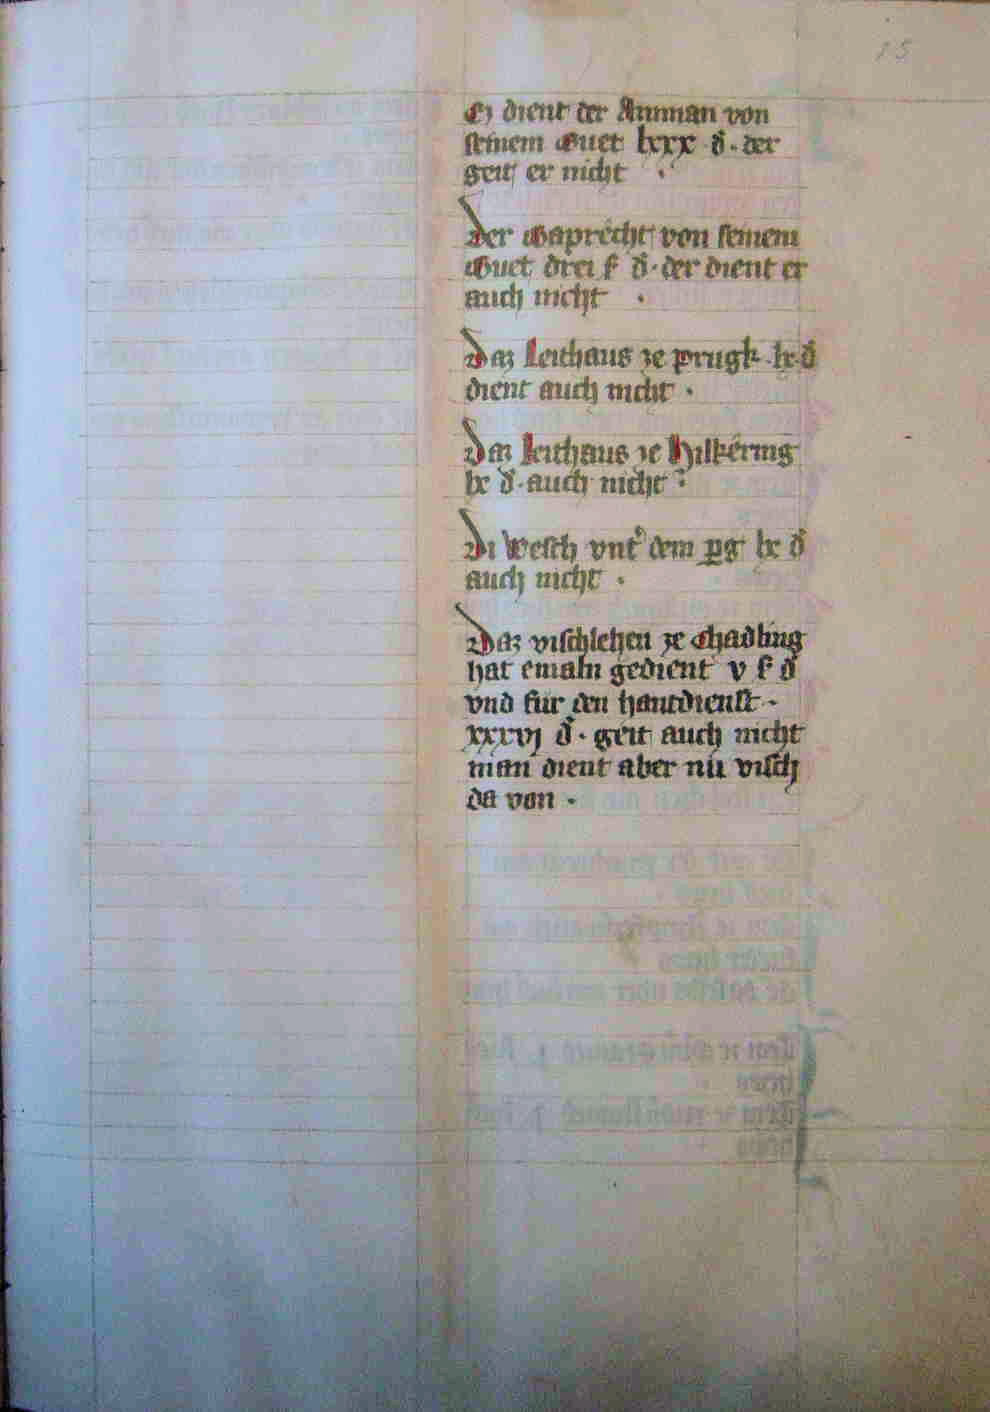 15
Ez dient der Amman von
seinem Guet lxxx ₰. der
geit er nicht .
Der Gaprêcht von seinem
Guet drei ß ₰. der dient er
auch nicht .
Daz Leithaus ze Prugk. lx ₰
dient auch nicht .
Daz Leithaus ze Hilkêring
lx ₰. auch nicht .
Di Wesch vnt' dem lx ₰
auch nicht .
Daz vischlehen ze Chadling
hat emaln gedient v ß ₰
vnd für den hantdienst .
xxxvj ₰. geit auch nicht
man dient aber nu visch
da von .